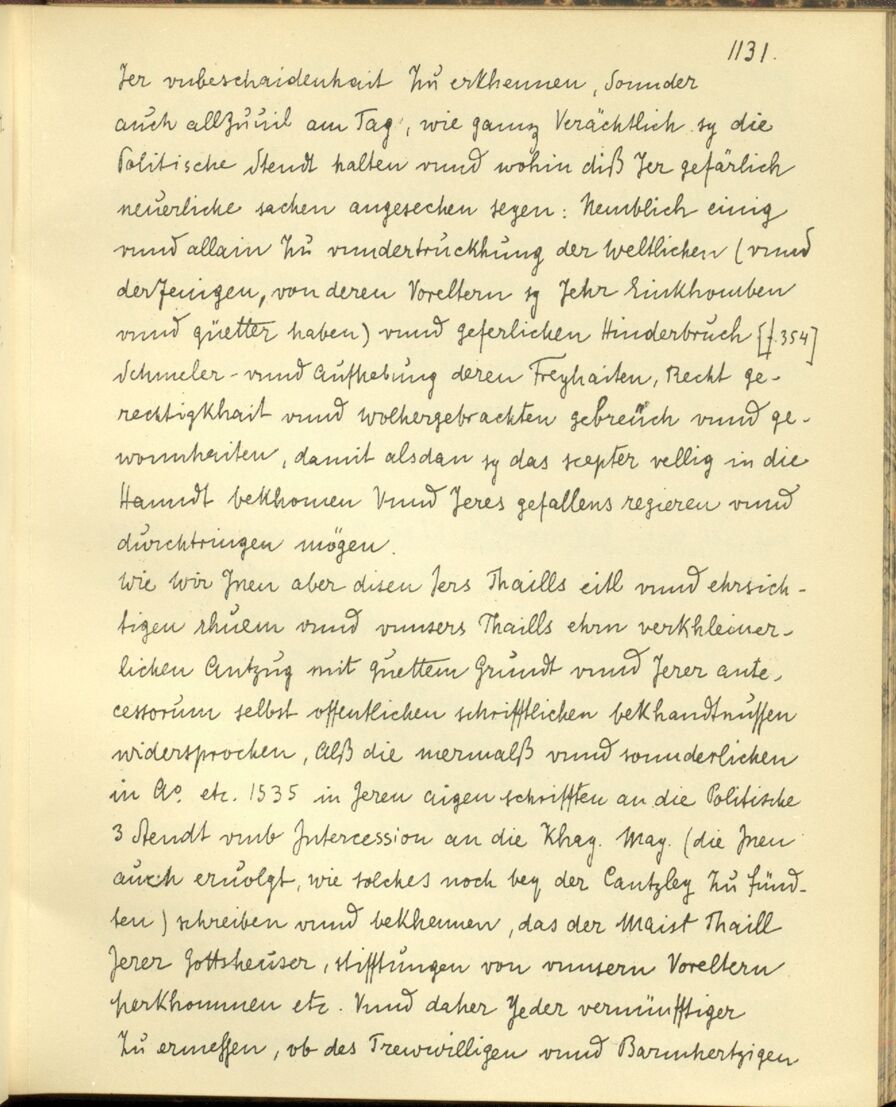 1131.
Jer vnbeschaidenhait Zů erkhennen, Sonnder
auch allZůuil am Tag, wie gannz Verächtlich sy die
Politische Stendt halten vnnd wohin diß Jer gefärlich
neuerliche sachen angesechen seyen: Nemblich einig
vnnd allain Zů vnndertruckhůng der Weltlichen (vnnd
derJenigen, von deren Voreltern sy Jehr Einkhomben
vnnd güetter haben) vnnd geferlichen Hinderbruch [f. 354]
Schmeler- vnnd Aufhebůng deren Freyhaiten, Recht ge-
rechtigkhait vnnd wolhergebrachten gebreüch vnnd ge-
wonnhaiten, damit alsdan sy das scepter vellig in die
Hanndt bekhomen Vnnd Jeres gefallens regieren vnnd
důrchtringen mögen.
Wie Wir Jnen aber disen Jers Thaills eitl vnnd ehrsich-
tigen rhuem vnnd vnnsers Thaills ehrn verkhleiner-
lichen Antzug mit gůettem Grůndt vnnd Jerer ante-
cessorum selbst offentlichen schrifftlichen bekhandtnůssen
widersprochen, Alß die mermalß vnnd sonnderlichen
in Ao. etc. 1535 in Jeren aigen schrifften an die Politische
3 Stendt vmb Intercession an die Khay. May. (die Jnen
auch eruolgt, wie solches noch bey der Cantzley Zů fünd-
ten) schreiben vnnd bekhennen, das der Maist Thaill
Jerer Gottsheüser, stifftůngen von vnnsern Voreltern
herkhommen etc. Vnnd daher Yeder vernünfftiger
Zů ermessen, ob des Trewwilligen vnnd Barmhertzigen